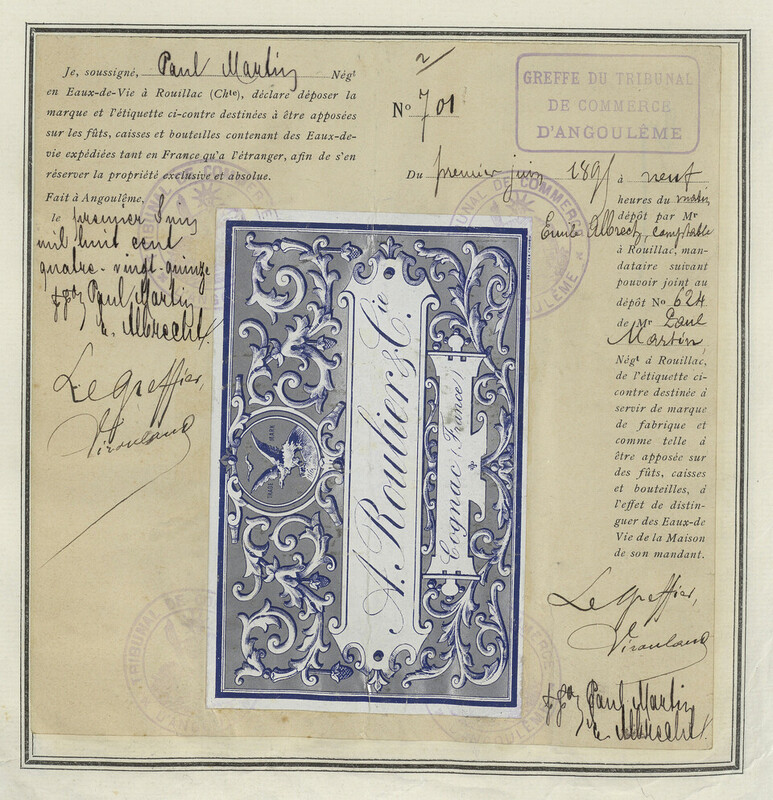 Je, soussigné, Paul Martin Négt
en Eaux-de-Vie à Rouillac (Chte), déclare déposer la
marque et l'étiquette ci-contre destinées à être apposées
sur les fûts, caisses et bouteilles contenant des Eaux-de-
vie expédiées tant en France qu'a l'étranger, afin de s'en
réserver la propriété exclusive et absolue.
Fait à Angoulême,
le premier Juin
mil huit cent
quatre-vingt-quinze
Paul Martin
E. Albrecht
Le Greffier,
2/
No 701
GREFFE DU TRIBUNAL
DE COMMERCE
D'ANGOULÊME
Du premier juin 1895 à neuf
heures du matin
dépôt par Mr
Emile Albrecht, comptable
à Rouillac, man-
dataire suivant
pouvoir joint au
dépôt No 624
de Mr Paul
Martin
Négt à Rouillac,
de l'étiquette ci-
contre destinée à
servir de marque
de fabrique et
comme telle à
être apposée sur
des fûts, caisses
et bouteilles, à
l'effet de distin-
guer des Eaux-de
Vie de la Maison
de son mandant.
Le Greffier,
Paul Martin
E. Albrecht
A. Roulier & Cie
Cognac (France)
TRADE MARK
TRIBUNAL DE COMMERCE
D'ANGOULÊME